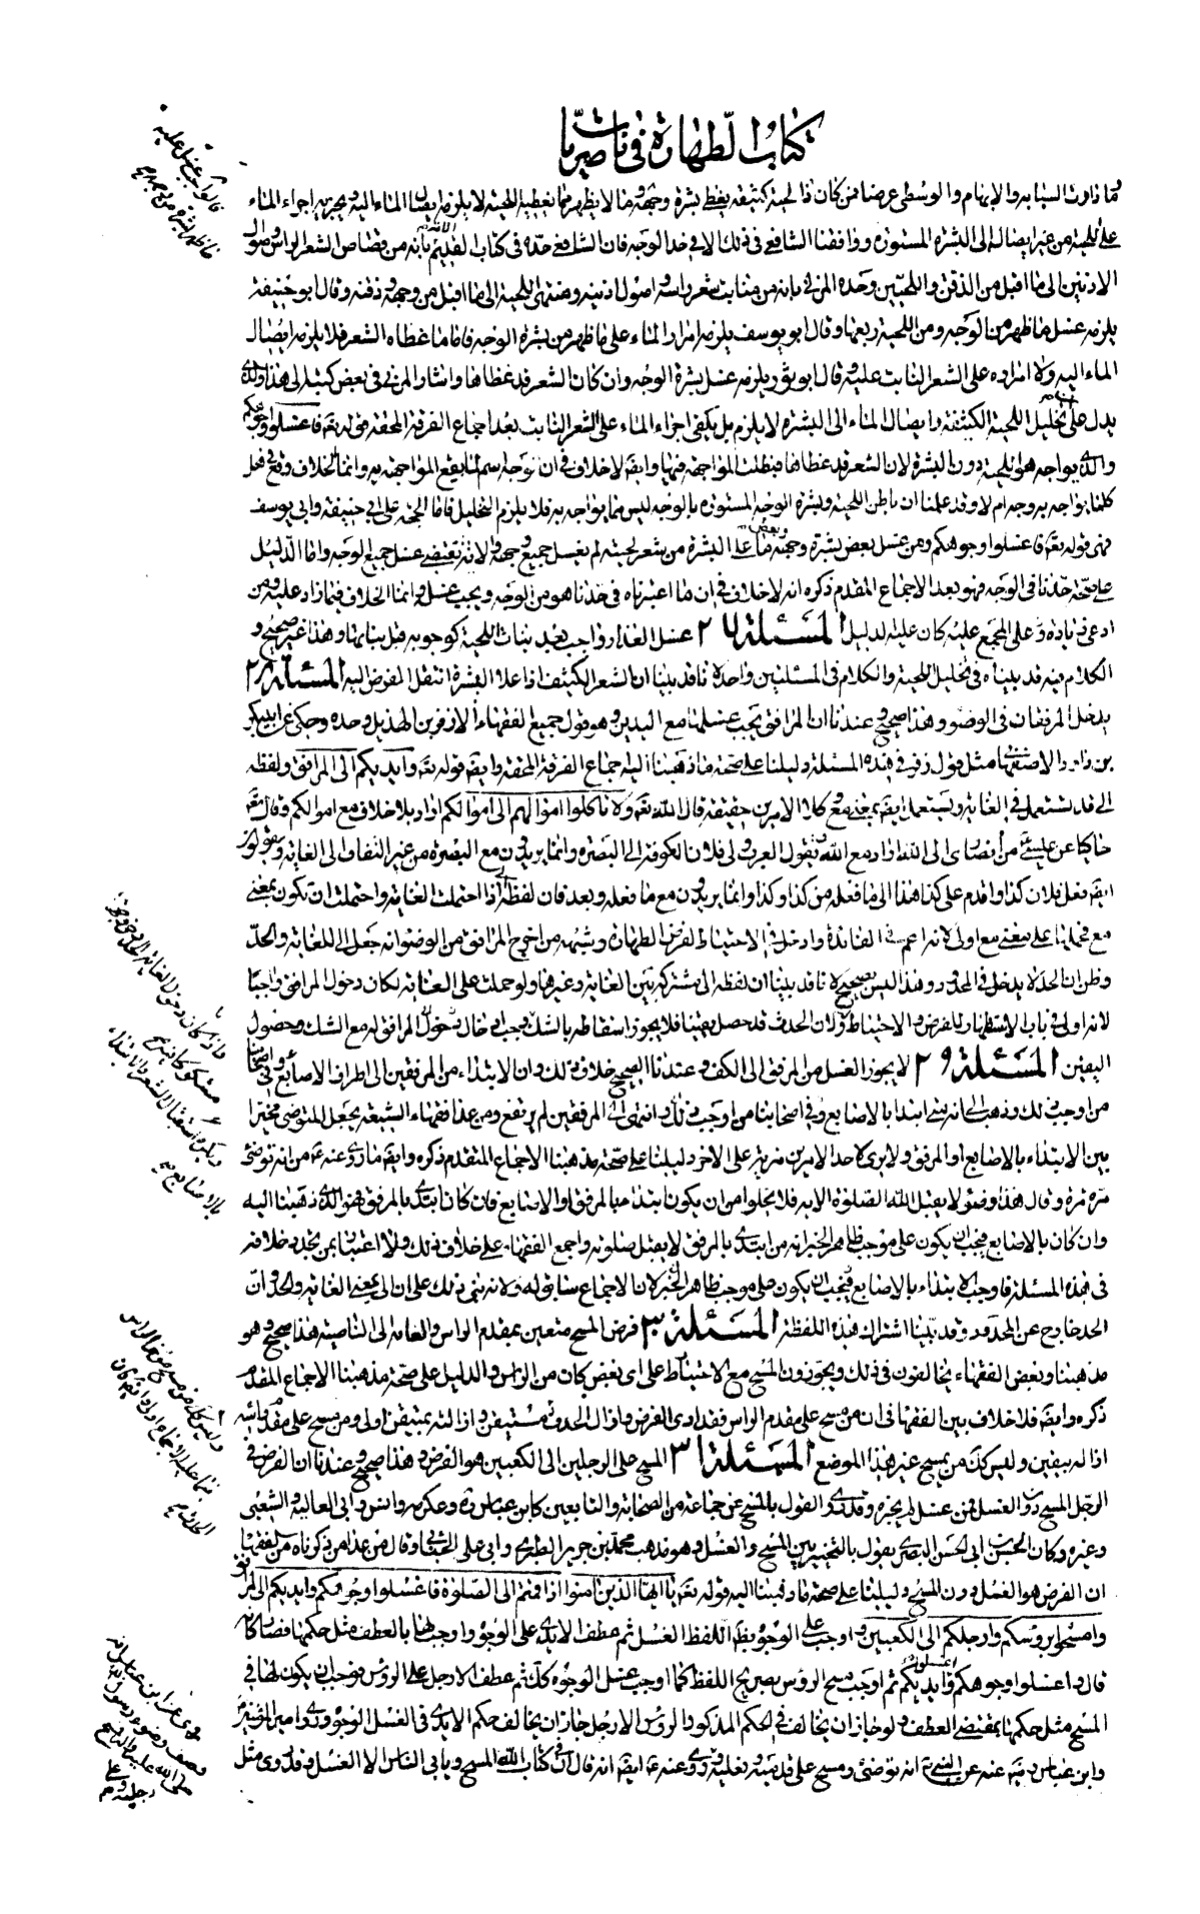 كتاب الطهارة في ناصريات
وما دارت السبابة والابهام والوسطى عرضا فمن كان ذا لحية كثيفة يغطى بشرة وجهه فما لا يظهر مما يغطيه اللحية لا يلزمه ايصال الماء اليه ويجزيه اجراء الماء
على اللحية من غير ايصاله الى البشرة المستورة ووافقنا الشافعي في ذلك الا في حد الوجه فان الشافعي حده في كتاب الام بانه من قصاص الشعر الراس واصول
الاذنين الى ما اقبل من الذقن واللحيين وحده المزني بانه من منابت شعر راسه واصول اذنيه ومنتهى اللحية الى ما اقبل من وجهه وذقنه وقال ابو حنيفة
يلزمه غسل ما ظهر من الوجه ومن اللحية ربعها وقال ابو يوسف يلزمه امرار الماء على ما ظهر من بشرة الوجه فاما ما غطاه الشعر فلا يلزمه ايصال
الماء اليه ولا امراره على الشعر النابت عليه وقال ابو ثور يلزمه غسل بشرة الوجه وان كان الشعر قد غطاها واشار المزني في بعض كتبه الى هذا والذي
يدل على ان تخليل اللحية الكثيفة وايصال الماء الى البشرة لا يلزم بل يكفى اجراء الماء على الشعر النابت بعد اجماع الفرقة المحقة قوله تعم فاغسلوا وجوهكم
والذي يواجه هو اللحية دون البشرة لان الشعر قد غطاها فبطلت المواجهة فيها وايضه لا خلاف في ان الوجه اسم لما يقع المواجهة به وانما الخلاف وقع في هل
كلما يواجه به وجه ام لا وقد علمنا ان باطن اللحية وبشرة الوجه المستورة بالوجه ليس مما يواجه به فلا يلزم التخليل فاما الحجة على ابي حنيفة وابي يوسف
فهى قوله تعم فاغسلوا وجوهكم ومن غسل بعض بشرة وجهه وبعض ما على البشرة من شعر لحيته لم يغسل جميع وجهه والاية تقتضي غسل جميع الوجه واما الدليل
على صحة حدنا في الوجه فهو بعد الاجماع المقدم ذكره انه لا خلاف في ان ما اعتبرناه في حدنا هو من الوجه ويجب غسله وانما الخلاف فيما زاد عليه ومن
ادعى زيادة على المجمع عليه كان عليه الدليل المسئلة ٢٧ غسل العذار واجب بعد نبات اللحية كوجوبه قبل نباتها وهذا غير صحيح و
الكلام فيه قد بيناه في تخليل اللحية والكلام في المسئلتين واحد لانا قد بينا ان الشعر الكثيف اذا علا البشرة انتقل الفرض اليه المسئلة ٢٨
يدخل المرفقان في الوضوء وهذا صحيح وعندنا ان المرافق يجب غسلها مع اليدين وهو قول جميع الفقهاء الا زفر بن الهذيل وحده وحكي عن ابي بكر
بن داود الاصفهاني مثل قول زفر في هذه المسئلة دليلنا على صحة ما ذهبنا اليه اجماع الفرقة المحقة وايضه قوله تعم وايديكم الى المرافق ولفظه
الى قد تستعمل في الغاية وتستعمل ايضه بمعنى مع وكلا الامرين حقيقة قال الله تعم ولا تاكلوا اموالهم الى اموالكم اراد بلا خلاف مع اموالكم وقال تعم
حاكيا عن عيسى من انصاري الى الله اراد مع الله وتقول العرب ولي فلان الكوفة الى البصرة وانما يريدون مع البصرة من غير التفات الى الغاية ويقولون
ايضه فعل فلان كذا واقدم على كذا هذا الى ما فعله من كذا وكذا وانما يريدون مع ما فعله وبعد فان لفظة الى اذا احتملت الغاية واحتملت ان تكون بمعنى
مع فحملها على معنى مع اولى لانه اعم في الفائدة وادخل في الاحتياط لفرض الطهارة وشبهة من اخرج المرافق من الوضوء انه جعل الى للغاية والحد
وظن ان الحد لا يدخل في المحدود وهذا ليس بصحيح لانا قد بينا ان لفظه الى مشتركة بين الغاية وغيرها ولو حملت على الغاية لكان دخول المرافق واجبا
لانه اولى في باب الاستظهار للفرض والاحتياط ولان الحدث قد حصل يقينا فلا يجوز اسقاطه بالشك ويجب ادخال دخول المرافق له مع الشك وحصول
اليقين المسئلة ٢٩ لا يجوز الغسل من المرفق الى الكف وعندنا الصحيح خلاف ذلك وان الابتداء من المرفقين الى اطراف الاصابع وفي اصحابنا
من اوجب ذلك وذهب الى انه متى ابتدا بالاصابع وفي اصحابنا من اوجب ذلك وانتهى الى المرفقين لم يرتفع ومن عدا فقهاء الشيعة يجعل المتوضي مخيرا
بين الابتداء بالاصابع او المرفق ولا يرى لاحد الامرين مزية على الاخر دليلنا على صحة مذهبنا الاجماع المتقدم ذكره وايضه ما روى عنه ع من انه توضئ
مرة مرة وقال هذا وضوء لا يقبل الله الصلوة الا به فلا يخلوا من ان يكون ابتداء بالمرفق او الاصابع فان كان ابتدى بالمرفق فهو الذي ذهبنا اليه
وان كان بالاصابع فيجب ان يكون على موجب ظاهر الخبر انه من ابتدى بالمرفق لا يقبل صلوته واجمع الفقهاء على خلاف ذلك ولا اعتبار بمن يجدد خلافه
في هذه المسئلة فاوجب الابتداء بالاصابع فيجب ان يكون على موجب ظاهر الخبر لان الاجماع سابق له ولانه بنى ذلك على ان الى بمعنى الغاية والحد وان
الحد خارج عن المحدود وقد بينا اشتراك هذه اللفظة المسئلة ٣٠ فرض المسح متعين بمقدم الراس والغاية الى الناصية هذا صحيح وهو
مذهبنا وبعض الفقهاء يخالفون في ذلك ويجوزون المسح مع الاحتياط على اى بعض كان من الراس والدليل على صحة مذهبنا الاجماع المقدم
ذكره وايضه فلا خلاف بين الفقهاء في ان من مسح على مقدم الراس فقد ادى الفرض وازال الحدث مستيقن وازالته بمتيقن اولى ومن مسح على مقدم راسه
ازاله بيقين وليس كك من يمسح غير هذا الموضع المسئلة ٣١ المسح على الرجلين الى الكعبين هو الفرض هذا صحيح وعندنا ان الفرض في
الرجل المسح دون الغسل فمن غسل لم يجزه وقد روى القول بالمسح عن جماعة من الصحابة والتابعين كابن عباس ره وعكرمه وانس وابي العالية والشعبي
وغيره وكان الحسن بن ابي الحسن البصري يقول بالتخيير بين المسح والغسل وهو مذهب محمد بن جرير الطبري وابي علي الجبائي وقال من عدا من ذكرناه من الفقهاء
ان الفرض هو الغسل دون المسح دليلنا على صحة ما ذهبنا اليه قوله تعم يا ايها الذين امنوا اذا قمتم الى الصلوة فاغسلوا وجوهكم وايديكم الى المرافق
وامسحوا برؤسكم وارجلكم الى الكعبين واوجب على الوجوه بظاهر اللفظ الغسل ثم عطف الايدي على الوجوه واوجب لها بالعطف مثل حكمها فصار كانه
قال فاغسلوا وجوهكم واغسلوا ايديكم ثم اوجب مسح الرؤس بصريح اللفظ كما اوجب غسل الوجوه كك ثم عطف الارجل على الرؤس فوجب ان يكون لها في
المسح مثل حكمها بمقتضى العطف ولو جاز ان يخالف في الحكم المذكور الرؤس الارجل جاز ان يخالف حكم الايدي في الغسل الوجوه وروى امير المؤمنين ع
وابن عباس رضيه عنه عن النبي ص انه توضئ ومسح على قدميه ونعليه وروى عنه ع ايضه انه قال ان في كتاب الله المسح ويابى الناس الا الغسل وقد روى مثل
روى عن ابن عباس انه
وصف وضوء رسول الله
صلى الله عليه واله فمسح
على رجليه